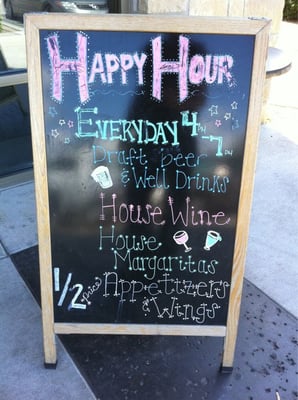 Happy Hour
Everyday 4-7pm
Draft beer
& Well Drinks
House Wine
House
Margaritas
1/2 price Appetizers
& Wings